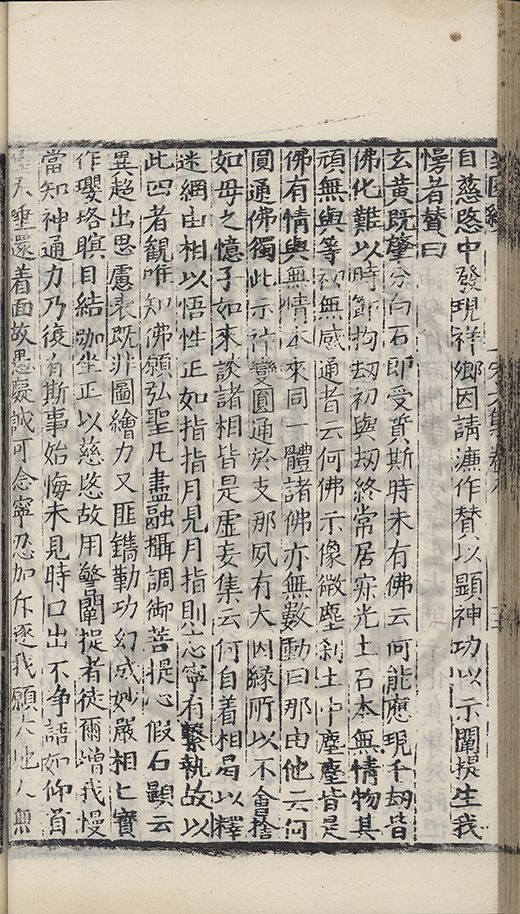 自慈愍中發現祥鄉因請濂作贊以顯神功以示闡提生我
慢者贊曰
玄黃既肇分向石即受質斯時未有佛云何能應現千劫皆
佛化難以時節拘劫初與劫終常居寂光土石本無情物其
頑無與等初無感通者云何佛示像微塵刹土中塵塵皆是
佛有情與無情本來同一體諸佛亦無數動曰那由他云何
圓通佛獨此示神變圓通於支那夙有大因緣所以不會捨
如母之憶子如來談諸相皆是虛妄集云何自着相局以釋
迷網由相以悟性正如指指月見月指則忘寧有繫執故以
此四者觀唯知佛願弘聖凡盡融攝調御菩提心假石顯云
異超出思慮表既非圖繪力又匪鐫勒功幻成妙嚴相七寶
作瓔珞瞑目結跏坐正以慈愍故用警闡提者徒爾增我慢
當知神通力乃復有斯事始悔未見時口出不争語如仰首
唾天唾還着面故愚癡誠可念寧忍加斥逐我願大地人無